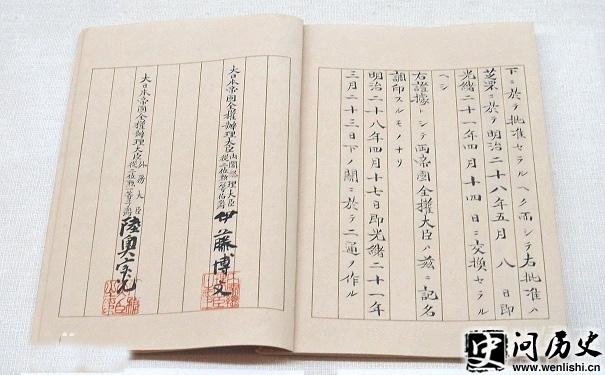 下ニ於テ批准セラルヘク而シテ右批准ハ
芝罘ニ於テ明治二十八年五月 八 日即
光緒二十一年四月十四日ニ交換セラル
ヘシ
右證據トシテ両帝國全權大臣ハ茲ニ記名
調印スルモノナリ
明治二十八年四月十七日即光緒二十一年
三月二十三日下ノ關ニ於テ二通ヲ作ル
大日本帝國全權辦理大臣內閣總理大臣從二位勳一等伯爵 伊藤博文
大日本帝國全權辦理大臣外務大臣從二位勳一等子爵 陸奥宗光
问历史
www.wenlishi.cn